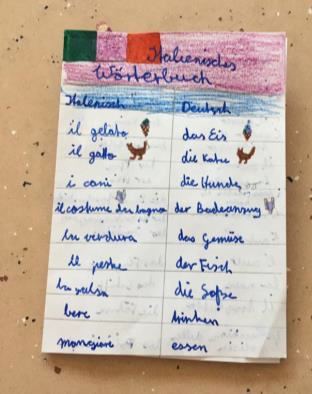 Italienisches
Wörterbuch
Italienisch Deutsch
il gelato das Eis
il gatto die Katze
i cani die Hunde
il costume da bagno der Badeanzug
la verdura das Gemüse
il peshe der Fisch
la salsa die Soße
bere trinken
mangiare essen